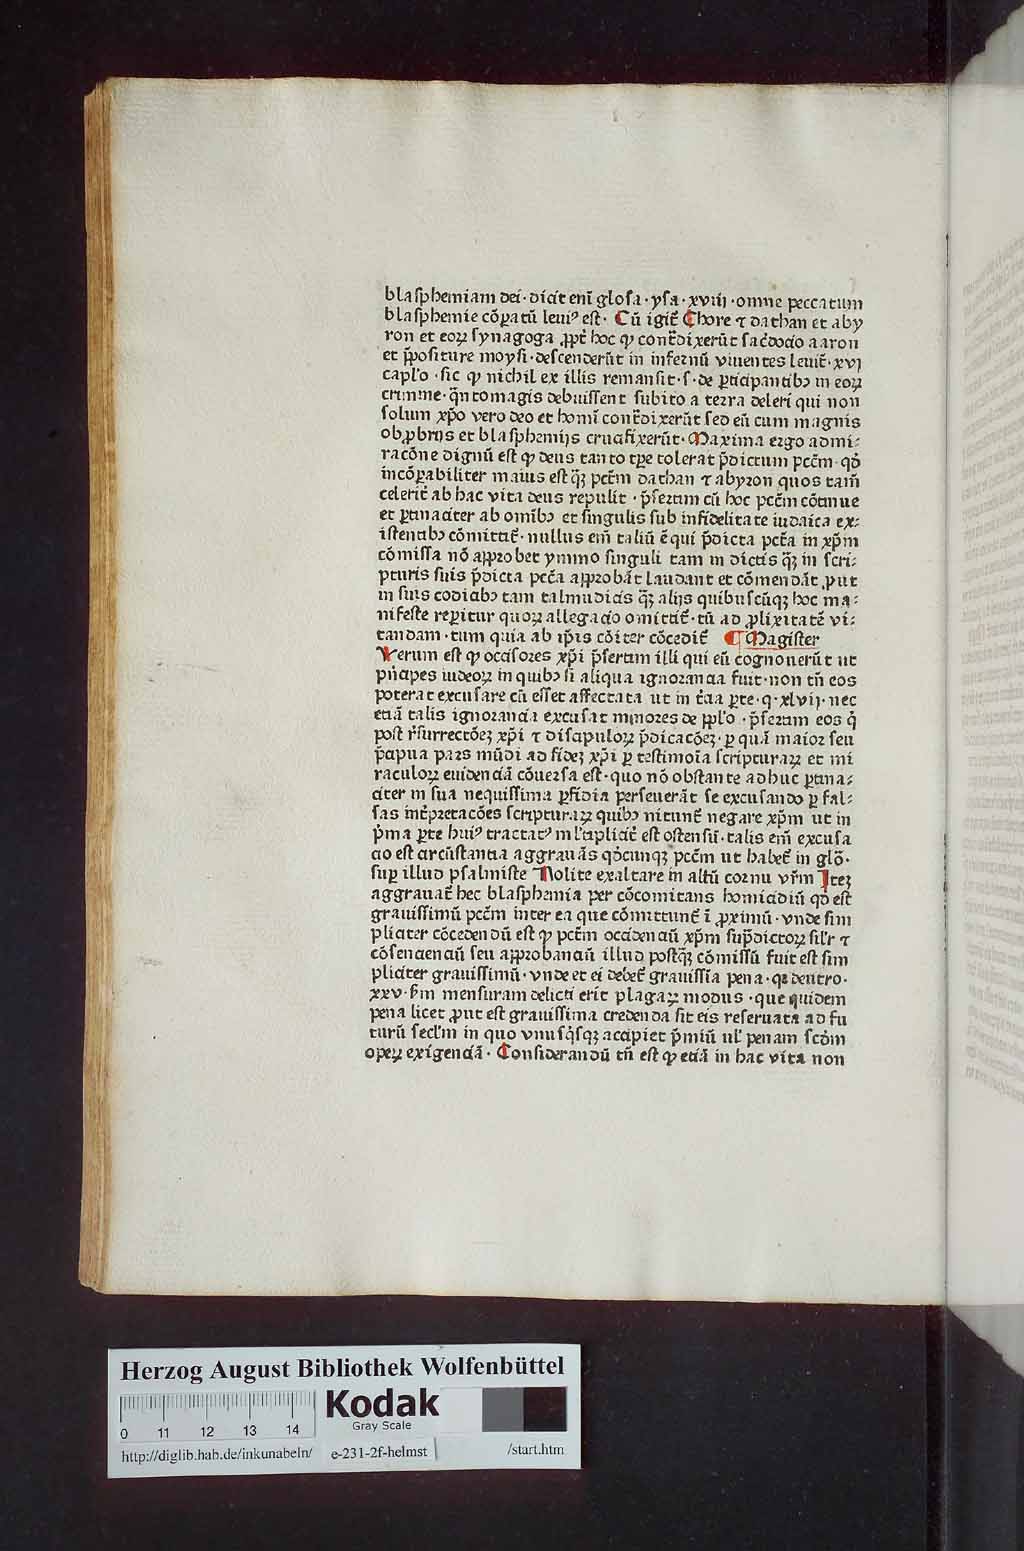 blasphemiam dei · dicit enī glosa · ysa · xviij · omne peccatum
blasphemie cōꝑatū leuiꝰ est · Cū igit᷑ Chore ⁊ dathan et aby
ron et eoꝝ synagoga ꝓpt̄ hoc ꝙ cont̄dixerūt sac̄docio aaron
et p̄positure moysi · descenderūt in infernū viuentes leuit̄ · xvj
capl'o · sic ꝙ nichil ex illis remansit · s · de ꝑticipantibꝰ in eoꝝ
crimine · q̄ntomagis debuissent subito a terra deleri qui non
solum xp̄o vero deo et homī cont̄dixerūt sed eū cum magnis
obꝓbrijs et blasphemijs crucifixerūt · Maxima ergo admi⸗
racōne dignū est ꝙ deus tanto tꝑe tolerat p̄dictum pcc̄m · qd̄
incōꝑabiliter maius est qꝫ pcc̄m dathan ⁊ abyron quos tam̄
celerit̄ ab hac vita deus repulit · p̄sertim cū hoc pcc̄m cōtinue
et ꝑtinaciter ab om̄ibꝰ et singulis sub infidelitate iudaica ex⸗
istentibꝰ cōmittit᷑ · nullus em̄ taliū ē qui p̄dicta pcc̄a in xp̄m
cōmissa nō approbet ymmo singuli tam in dictis qꝫ in scri⸗
pturis suis p̄dicta pcc̄a approbāt laudant et cōmendāt ꝓut
in suis codicibꝰ tam talmudicis qꝫ alijs quibuscūqꝫ hoc ma⸗
nifeste reꝑitur quoꝝ allegacio omittit᷑ · tū ad ꝓlixitatē vi⸗
tandam · tum quia ab ip̄is cōiter cōcedit᷑ ¶ Magister
Verum est ꝙ occisores xp̄i p̄sertim illi qui eū cognouerūt ut
pn̄cipes iudeoꝝ in quibꝰ si aliqua ignorancia fuit · non tn̄ eos
poterat excusare cū esset affectata ut in t̄cia ꝑte · q · xlvij · nec
eciā talis ignorancia excusat minores de ꝓpl'o · p̄sertim eos q̄
post r̄surrectōeꝫ xp̄i ⁊ discipuloꝝ p̄dicacōeꝫ · ꝑ quā maior seu
p̄cipua pars mūdi ad fideꝫ xp̄i ꝑ testimoīa scripturaꝝ et mi
raculoꝝ euidenciā cōuersa est · quo nō obstante adhuc ꝑtina⸗
citer in sua nequissima ꝑfidia perseuerāt se excusando ꝑ fal⸗
sas int̄pretacōes scripturaꝝ quibꝰ nitunt᷑ negare xp̄m ut in
p̄ma ꝑte huiꝰ tractatꝰ ml'tiplicit̄ est ostensū · talis em̄ excusa
cio est circūstancia aggrauās qd̄cunqꝫ pcc̄m ut habet᷑ in glō ·
suꝑ illud psalmiste Nolite exaltare in altū cornu vr̄m Iteꝫ
aggrauat᷑ hec blasphemia per cōcomitans homicidiū qd̄ est
grauissimū pcc̄m inter ea que cōmittunt᷑ ī ꝓximū · vnde sim
pliciter cōcedendū est ꝙ pcc̄m occidenciū xp̄m sup̄dictoꝝ sil'r ⁊
cōsencienciū seu approbanciū illud postqꝫ cōmissū fuit est sim
pliciter grauissimū · vnde et ei debet᷑ grauissīa pena · qꝛ deutro ·
xxv · s̄m mensuram delicti erit plagaꝝ modus · que quidem
pena licet ꝓut est grauissima credenda sit eis reseruata ad fu
turū secl'm in quo vnusq̄sqꝫ accipiet p̄miū ul' penam scd̄m
oꝑeꝝ exigenciā · Considerandū tn̄ est ꝙ eciā in hac vita non
Herzog August Bibliothek Wolfenbüttel
Kodak
Gray Scale
0 11 12 13 14
http://diglib.hab.de/inkunabeln/ e-231-2f-helmst /start.htm